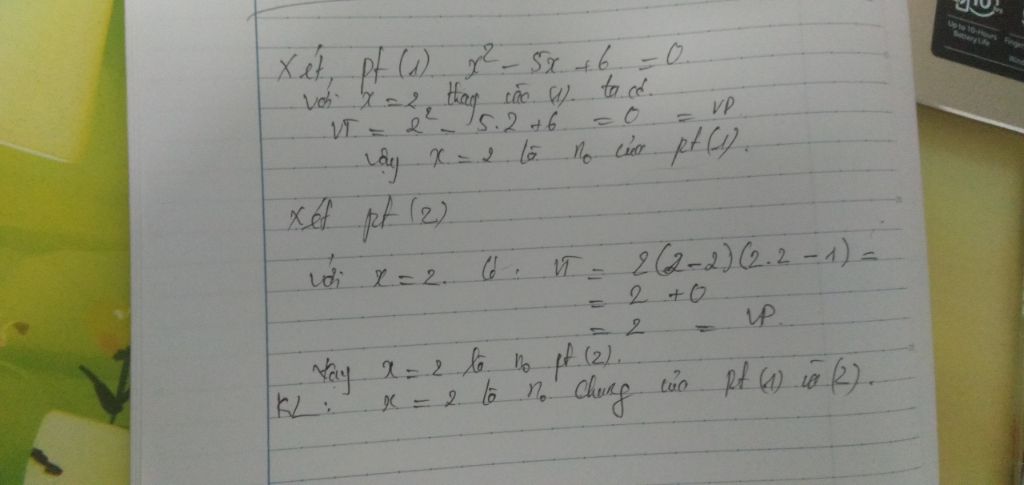 Xét pt (1) x² - 5x + 6 = 0
Với x = 2 thay vào (1) ta có
VT = 2² - 5.2 + 6 = 0 = VP
Vậy x = 2 là n₀ của pt (1).
Xét pt (2)
Với x = 2. Có: VT = 2(2-2)(2.2-1) =
= 2 + 0
= 2 = VP.
Vậy x = 2 là n₀ pt (2).
KL: x = 2 là n₀ chung của pt (1) và (2).
10
Up to 10-Hours
Battery Life